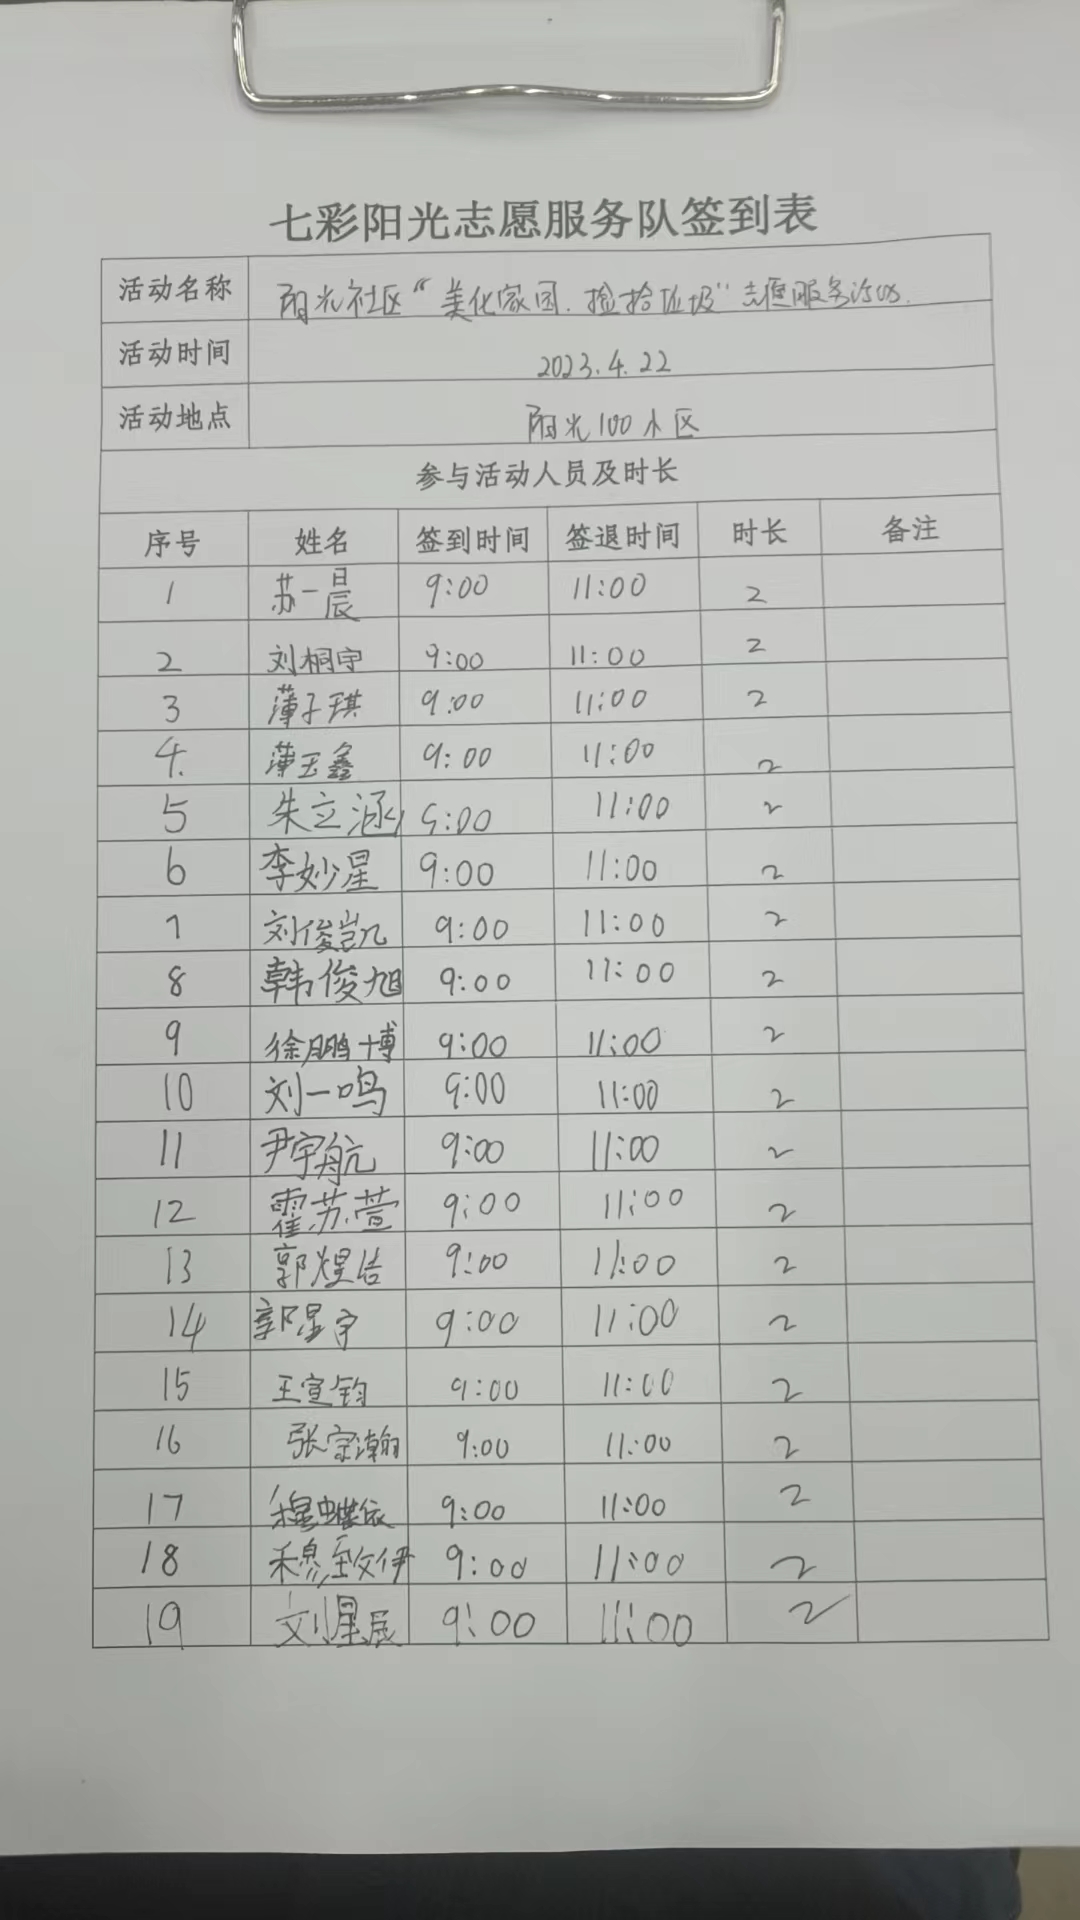 七彩阳光志愿服务队签到表
活动名称 阳光社区“美化家园.捡拾垃圾”志愿服务活动.
活动时间 2023.4.22
活动地点 阳光100小区
参与活动人员及时长
序号 姓名 签到时间 签退时间 时长 备注
1 苏一晨 9:00 11:00 2
2 刘桐宇 9:00 11:00 2
3 薄子琪 9:00 11:00 2
4. 薄玉鑫 9:00 11:00 2
5 朱立涵 9:00 11:00 2
6 李妙星 9:00 11:00 2
7 刘俊凯 9:00 11:00 2
8 韩俊旭 9:00 11:00 2
9 徐鹏博 9:00 11:00 2
10 刘一鸣 9:00 11:00 2
11 尹宇航 9:00 11:00 2
12 霍苏萱 9:00 11:00 2
13 郭煜 9:00 11:00 2
14 郭星宇 9:00 11:00 2
15 王宣钧 9:00 11:00 2
16 张宗瀚 9:00 11:00 2
17 蝶依 9:00 11:00 2
18 穆致伊 9:00 11:00 2
19 刘星辰 9:00 11:00 2